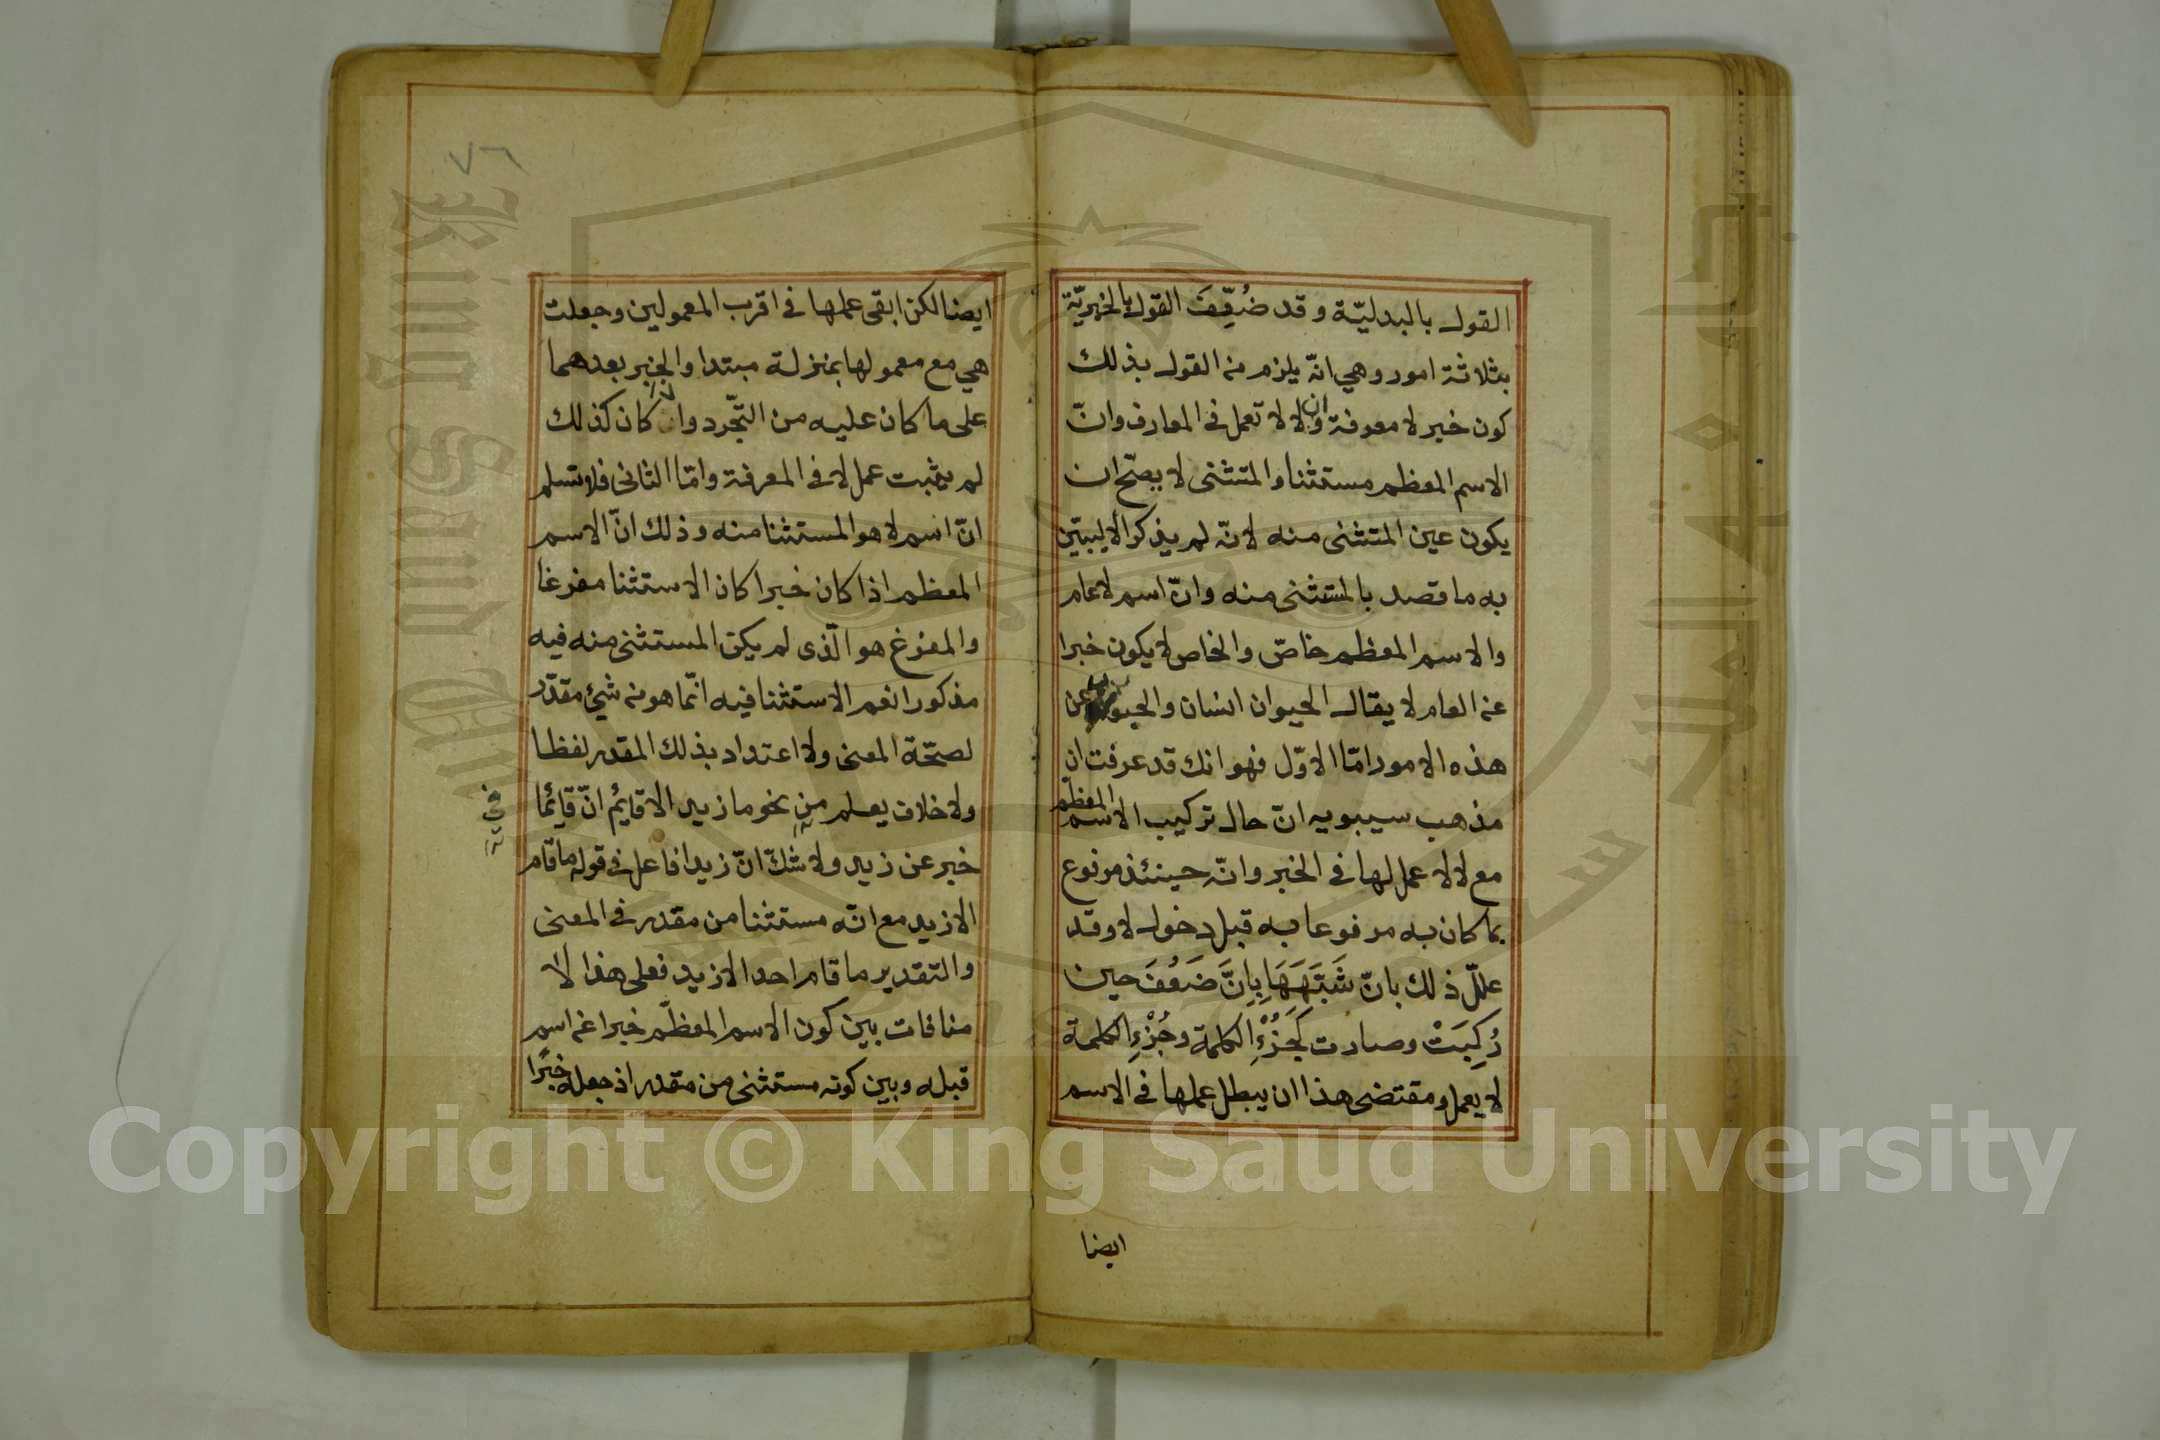 القول بالبدليّة وقد ضُعِّفَ القول بالخبريّة
بثلاثة امور وهي انّه يلزم من القول بذلك
كون خبر لا معرفة وان لا لا تعمل في المعارف وانّ
الاسم المعظم مستثنا والمتثنى لا يصّح ان
يكون عين المتثنى منه لانّه لم يذكر الا ليبيّن
به ما قصد بالمتثنى منه وانّ اسم لا عام
والاسم المعظم خاصّ والخاص لا يكون خبرا
عن العام لا يقال الحيوان انسان والجواب عن
هذه الامور امّا الاوّل فهو انك قد عرفت انّ
مذهب سيبويه انّ حال تركيب الاسم المعظم
مع لا لا عمل لها في الخبر وانّه حينئذ مرفوع
بما كان به مرفوعا به قبل دخول لا وقد
علّل ذلك بانّ شَبَهَهَا بِاِنَّ ضَعُفَ حين
رُكِبَتْ وصارت كَجُزْءِ الكلمة وجُزْءِ الكلمة
لا يعمل ومقتضى هذا ان يبطل عملها في الاسم
ايضا
٧٦
ايضا لكن ابقى عملها في اقرب المعمولين وجعلت
هي مع معمولها بمنزلة مبتدا والخبر بعدهما
على ما كان عليه من التّجرد واذا كان كذلك
لم يثبت عمل لا في المعرفة وامّا الثانى فلا نسلم
انّ اسم لا هو المستثنا منه وذلك انّ الاسم
المعظم اذا كان خبرا كان الاستثنا مفرغا
والمفرغ هو الّذى لم يكن المستثنى منه فيه
مذكورا نعم الاستثنا فيه انّما هو من شيئ مقدّر
لصحّة المعنى ولا اعتداد بذلك المقدر لفظا
ولا خلاف يعلم من نحو ما زيد الا قايُم انّ قايُما
خبر عن زيد ولا شكّ انّ زيدا فاعل في قوله ما قام
الا زيد مع انّه مستثنا من مقدر في المعنى
والتقدير ما قام احد الا زيد فعلى هذا لا
منافات بين كون الاسم المعظّم خبرا عن اسم
قبله وبين كونه مستثنى من مقدر اذ جعله خبرًا
في
Copyright © King Saud University